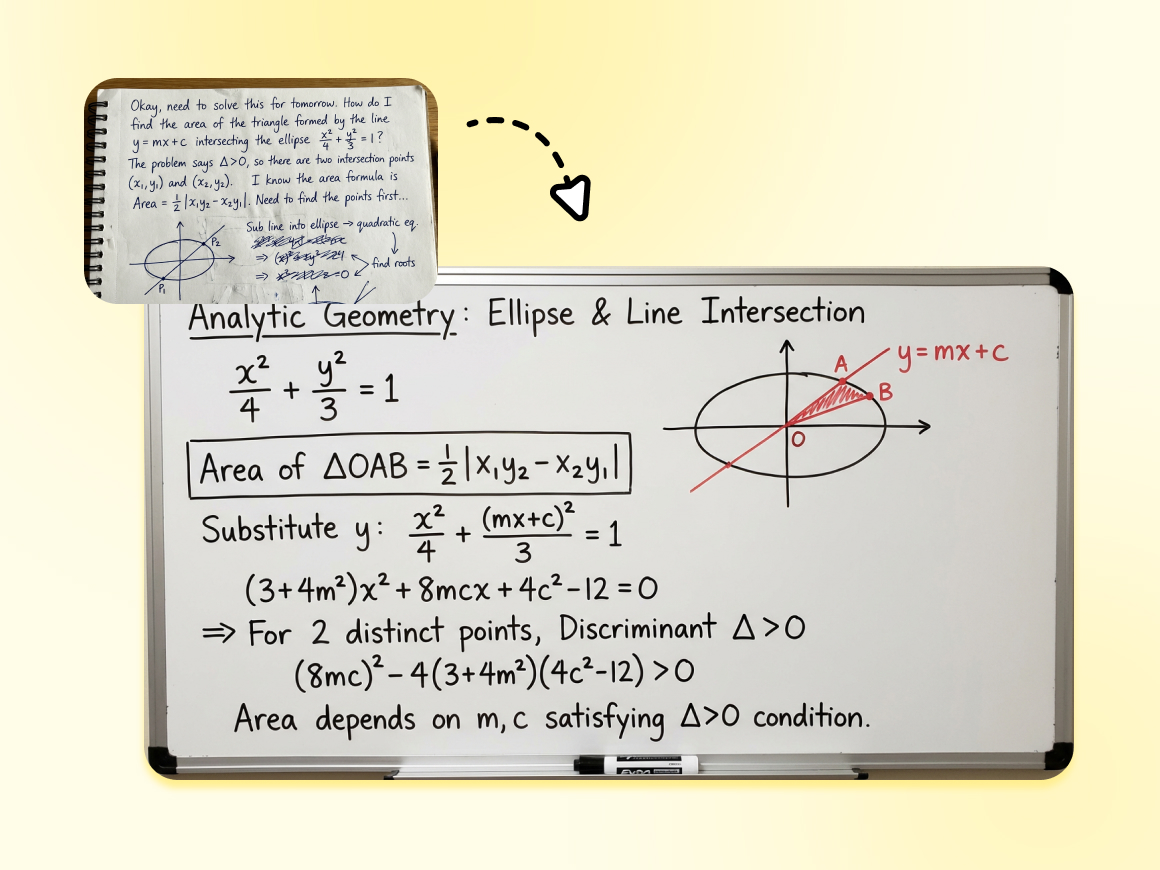 Okay, need to solve this for tomorrow. How do I
find the area of the triangle formed by the line
y = mx + c intersecting the ellipse x²/4 + y²/3 = 1?
The problem says Δ>0, so there are two intersection points
(x₁,y₁) and (x₂,y₂). I know the area formula is
Area = ½|x₁y₂ - x₂y₁|. Need to find the points first...
Sub line into ellipse → quadratic eq.
⇒
find roots
⇒ = 0
P₂
P₁
Analytic Geometry: Ellipse & Line Intersection
x²/4 + y²/3 = 1
y = mx + c
A
B
O
Area of ΔOAB = ½|x₁y₂ - x₂y₁|
Substitute y: x²/4 + (mx+c)²/3 = 1
(3+4m²)x² + 8mcx + 4c² - 12 = 0
⇒ For 2 distinct points, Discriminant Δ > 0
(8mc)² - 4(3+4m²)(4c²-12) > 0
Area depends on m, c satisfying Δ>0 condition.